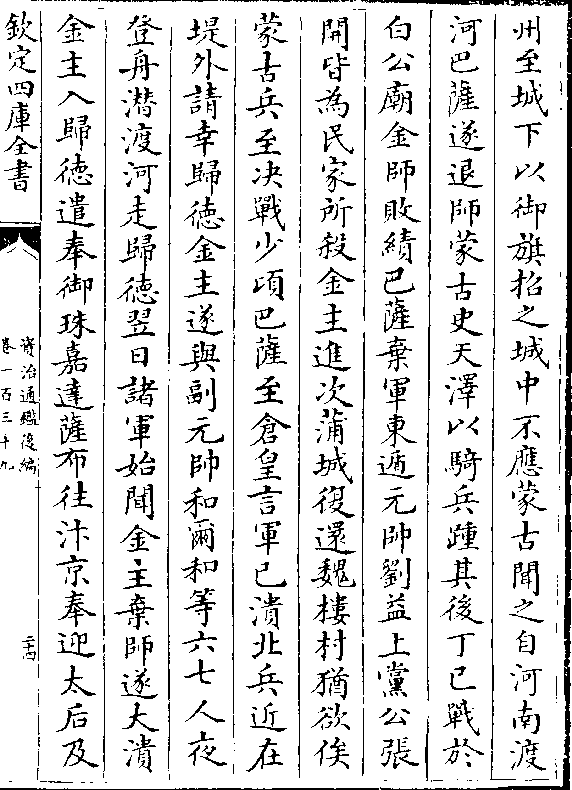 州至城下以御旗招之城中不應蒙古聞之自河南渡
河巴薩遂退師蒙古史天澤以騎兵踵其後丁巳戰於
白公廟金師敗績巴薩棄軍東遁元帥劉益上黨公張
開皆為民家所殺金主進次蒲城復還魏樓村猶欲俟
蒙古兵至決戰少頃巴薩至倉皇言軍已潰北兵近在
堤外請幸歸徳金主遂與副元帥和爾和等六七人夜
登舟潜渡河走歸徳翌日諸軍始聞金主棄師遂大潰
金主入歸徳遣奉御珠嘉達薩布往汴京奉迎太后及
欽定四庫全書
資治通鑑後編
卷一百三十九
二十四